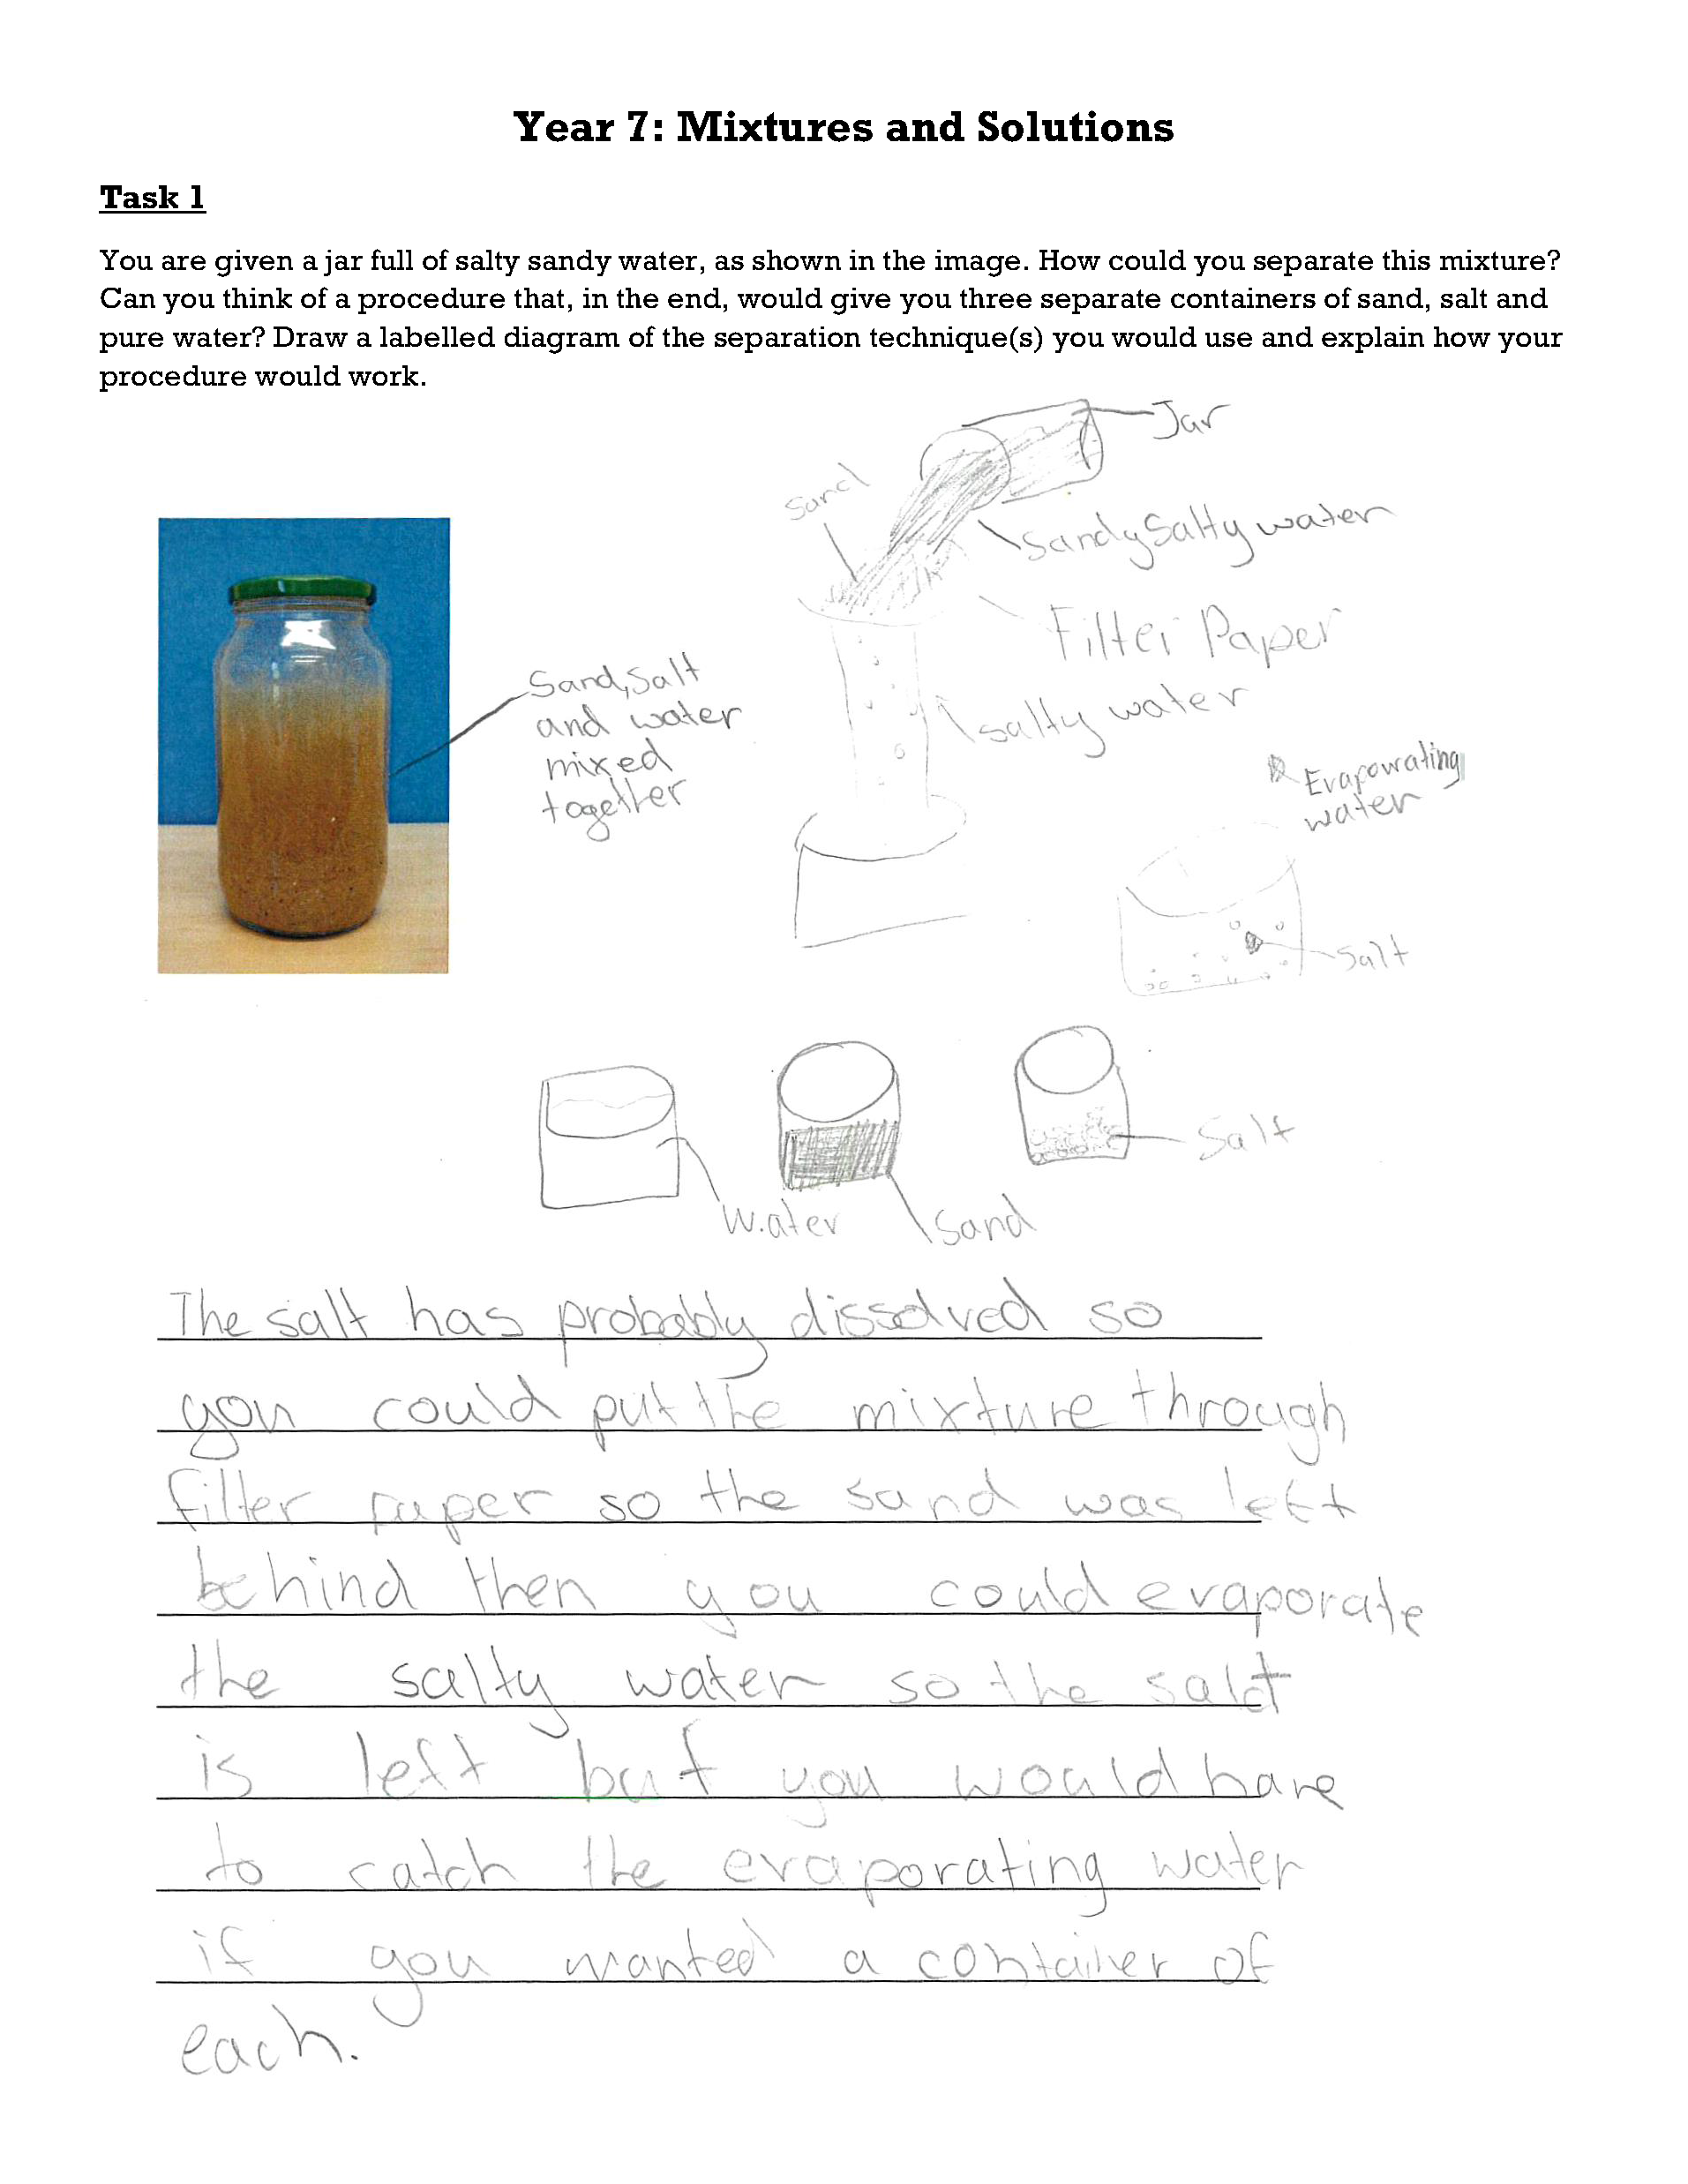 Year 7: Mixtures and Solutions
Task 1
You are given a jar full of salty sandy water, as shown in the image. How could you separate this mixture?
Can you think of a procedure that, in the end, would give you three separate containers of sand, salt and
pure water? Draw a labelled diagram of the separation technique(s) you would use and explain how your
procedure would work.
Jar
Sand
Sandy Salty water
Filter Paper
Sand, Salt
and water
mixed
together
salty water
Evapowrating
water
Salt
Salt
Water
Sand
The salt has probably dissolved so
you could put the mixture through
filter paper so the sand was left
behind then you could evaporate
the salty water so the salt
is left but you would have
to catch the evaporating water
if you wanted a container of
each.